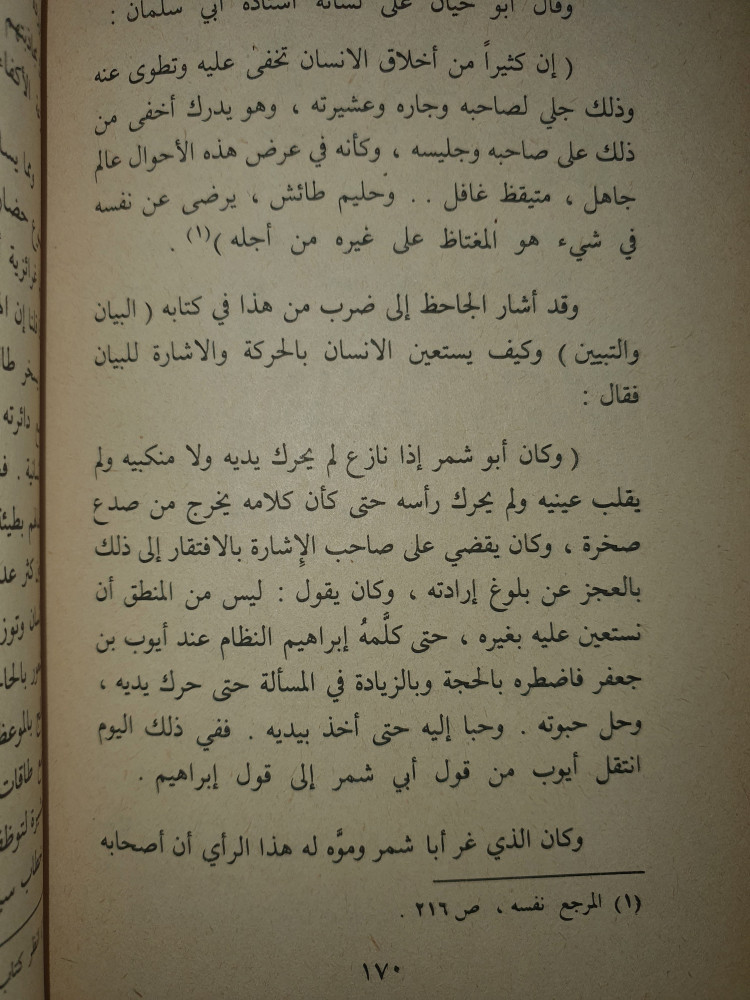 وقال أبو حيان على لسانه أستاذه أبي سلمان :
( إن كثيراً من أخلاق الانسان تخفى عليه وتطوى عنه
وذلك جلي لصاحبه وجاره وعشيرته ، وهو يدرك أخفى من
ذلك على صاحبه وجليسه ، وكأنه في عرض هذه الأحوال عالم
جاهل ، متيقظ غافل . . وحليم طائش ، يرضى عن نفسه
في شيء هو المغتاظ على غيره من أجله )(١) .
وقد أشار الجاحظ إلى ضرب من هذا في كتابه ( البيان
والتبيين ) وكيف يستعين الانسان بالحركة والاشارة للبيان
فقال :
( وكان أبو شمر إذا نازع لم يحرك يديه ولا منكبيه ولم
يقلب عينيه ولم يحرك رأسه حتى كأن كلامه يخرج من صدع
صخرة ، وكان يقضي على صاحب الإشارة بالافتقار إلى ذلك
بالعجز عن بلوغ إرادته ، وكان يقول : ليس من المنطق أن
نستعين عليه بغيره ، حتى كلَّمهُ إبراهيم النظام عند أيوب بن
جعفر فاضطره بالحجة وبالزيادة في المسألة حتى حرك يديه ،
وحل حبوته . وحبا إليه حتى أخذ بيديه . ففي ذلك اليوم
انتقل أيوب من قول أبي شمر إلى قول إبراهيم .
وكان الذي غر أبا شمر وموَّه له هذا الرأي أن أصحابه
(١) المرجع نفسه ، ص ٢١٦ .
١٧٠